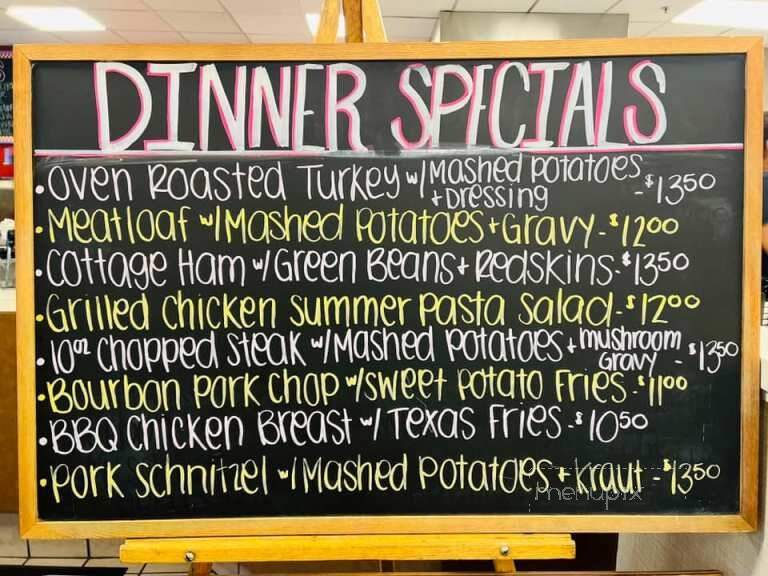 DINNER SPECIALS
• Oven Roasted Turkey w/ Mashed Potatoes + Dressing - $13 50
• Meatloaf w/ Mashed Potatoes + Gravy - $12 00
• Cottage Ham w/ Green Beans + Redskins - $13 50
• Grilled Chicken Summer Pasta Salad - $12 00
• 10 oz Chopped Steak w/ Mashed Potatoes + mushroom Gravy - $13 50
• Bourbon Pork Chop w/ Sweet Potato Fries - $11 00
• BBQ Chicken Breast w/ Texas Fries - $10 50
• Pork Schnitzel w/ Mashed Potatoes + Kraut - $13 50
menupix